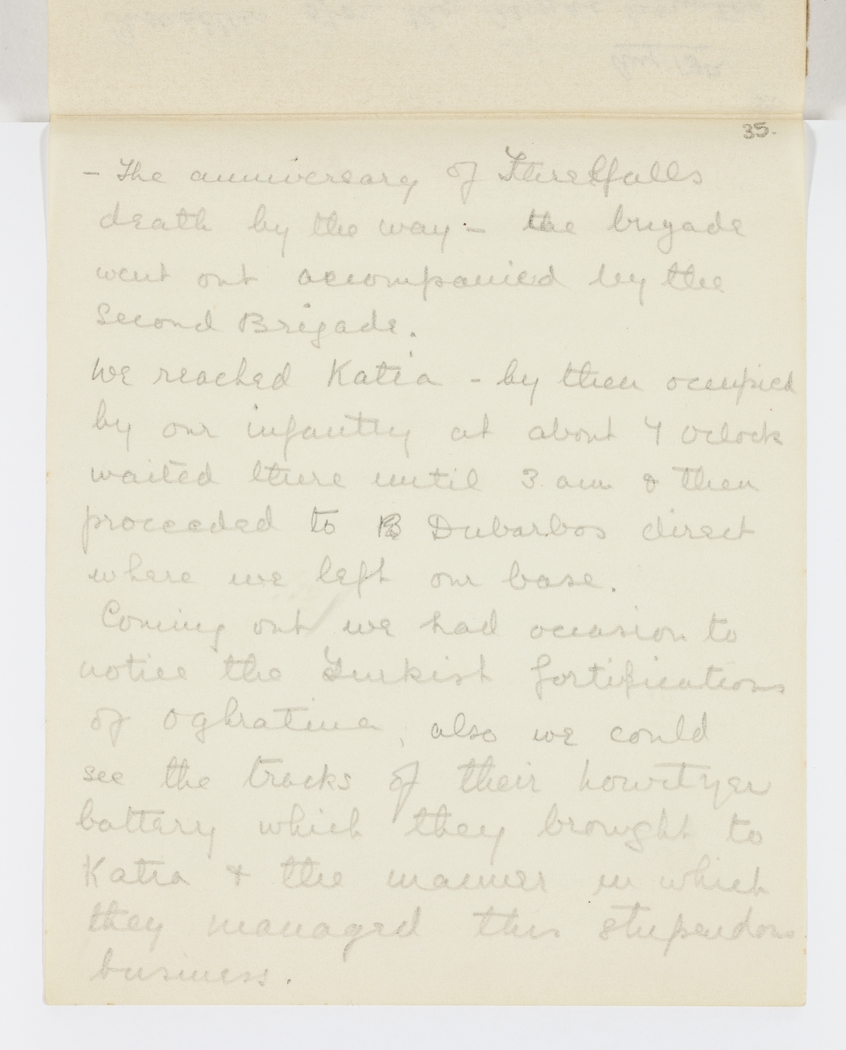 35.
- The anniversary of Threlfalls
death by the way - the brigade
went out accompanied by the
Second Brigade.
We reached Katia - by then occupied
by our infantry at about 7 oclock
waited there until 3 am & then
proceeded to B Dubarbos direct
where we left our base.
Coming out we had occasion to
notice the Turkish fortifications
of Oghratina, also we could
see the tracks of their howitzer
battery which they brought to
Katia & the manner in which
they managed this stupendous
business.